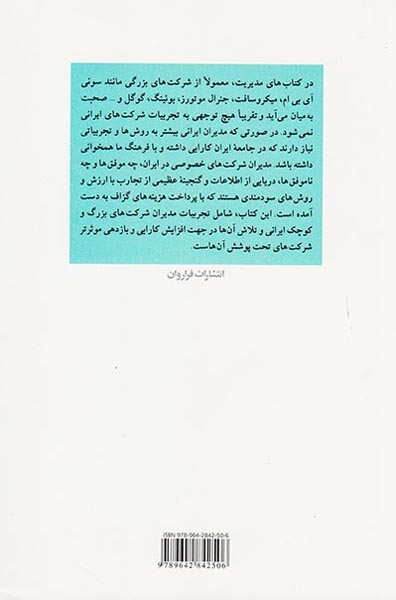 در کتاب‌های مدیریت، معمولاً از شرکت‌های بزرگی مانند سونی
آی بی ام، میکروسافت، جنرال موتورز، بوئینگ، گوگل و ... صحبت
به میان می‌آید و تقریباً هیچ توجهی به تجربیات شرکت‌های ایرانی
نمی‌شود. در صورتی که مدیران ایرانی بیشتر به روش‌ها و تجربیاتی
نیاز دارند که در جامعهٔ ایران کارایی داشته و با فرهنگ ما همخوانی
داشته باشد. مدیران شرکت‌های خصوصی در ایران، چه موفق‌ها و چه
ناموفق‌ها، دریایی از اطلاعات و گنجینهٔ عظیمی از تجارب با ارزش و
روش‌های سودمندی هستند که با پرداخت هزینه‌های گزاف به دست
آمده است. این کتاب، شامل تجربیات مدیران شرکت‌های بزرگ و
کوچک ایرانی و تلاش آن‌ها در جهت افزایش کارایی و بازدهی موثرتر
شرکت‌های تحت پوشش آن‌هاست.
انتشارات فراروان
ISBN 978-964-2842-50-6
9789642842506